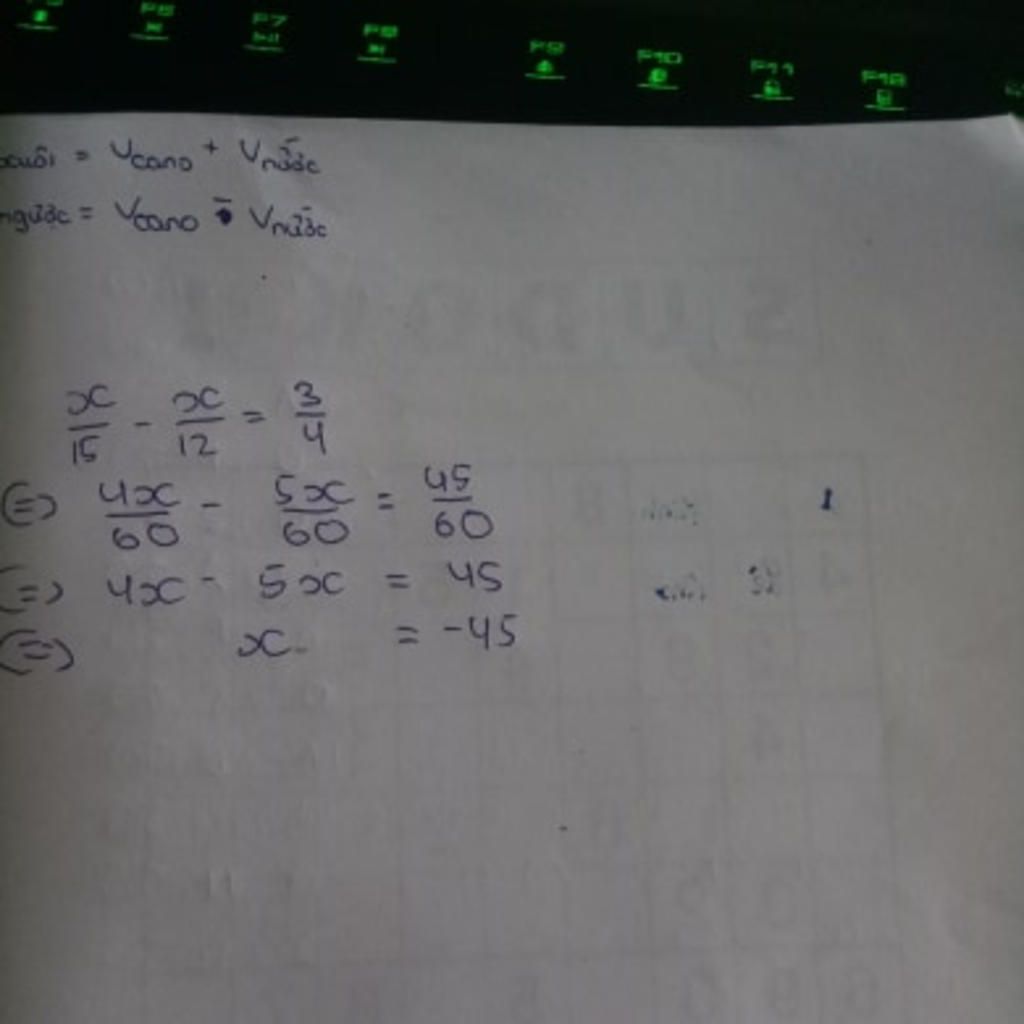 F6 F7 F8 F9 F10 F11 F12
xuôi = Vcano + Vnước
ngược = Vcano - Vnước
SUDO
x/15 - x/12 = 3/4
(=) 4x/60 - 5x/60 = 45/60
(=) 4x - 5x = 45
(=) x = -45